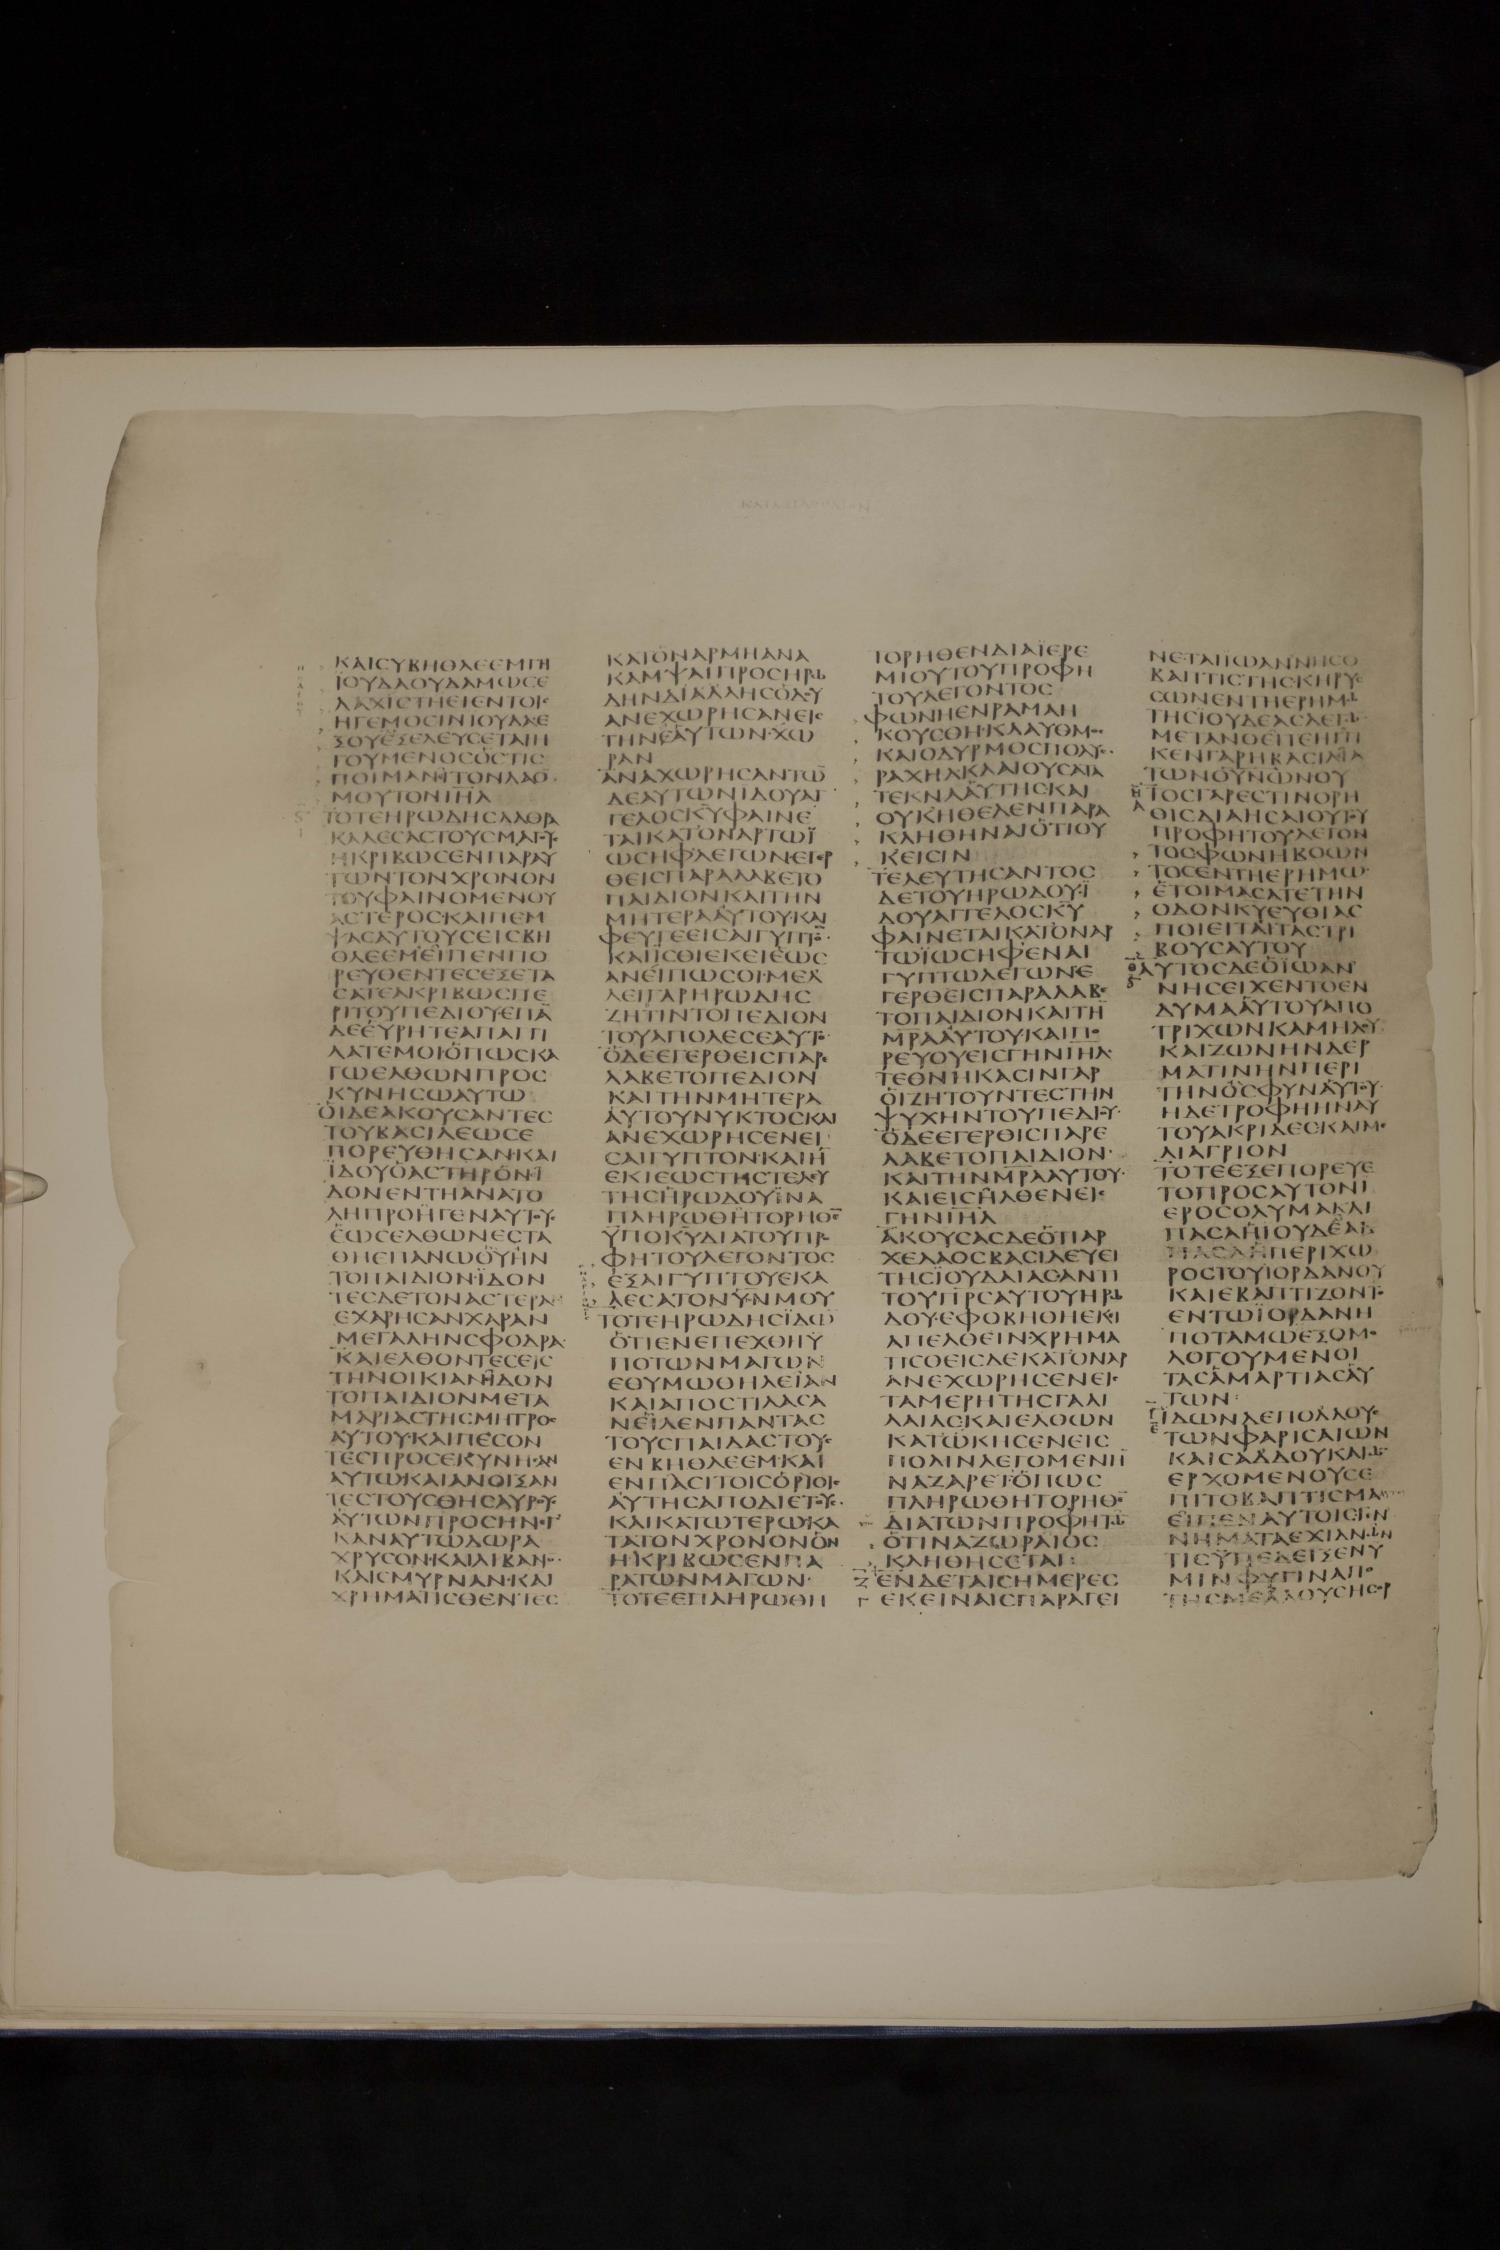 ΚΑΙϹΥΒΗΘΛΕΕΜΓΗ
ΪΟΥΔΑΟΥΔΑΜΩϹΕ
ΛΑΧΙϹΤΗΕΙΕΝΤΟΙϹ
ΗΓΕΜΟϹΙΝΙΟΥΔΑΕ
ΣΟΥΕΞΕΛΕΥϹΕΤΑΙΗ
ΓΟΥΜΕΝΟϹΟϹΤΙϹ
ΠΟΙΜΑΝΙΤΟΝΛΑΟ
ΜΟΥΤΟΝΙΗΛ
ΤΟΤΕΗΡΩΔΗϹΛΑΘΡΑ
ΚΑΛΕϹΑϹΤΟΥϹΜΑΓΟΥϹ
ΗΚΡΙΒΩϹΕΝΠΑΡΑΥ
ΤΩΝΤΟΝΧΡΟΝΟΝ
ΤΟΥΦΑΙΝΟΜΕΝΟΥ
ΑϹΤΕΡΟϹΚΑΙΠΕΜ
ΨΑϹΑΥΤΟΥϹΕΙϹΒΗ
ΘΛΕΕΜΕΙΠΕΝΠΟ
ΡΕΥΘΕΝΤΕϹΕΞΕΤΑ
ϹΑΤΕΑΚΡΙΒΩϹΠΕ
ΡΙΤΟΥΠΕΔΙΟΥΕΠΑ
ΔΕΕΥΡΗΤΕΑΠΑΓΓΙ
ΛΑΤΕΜΟΙΟΠΩϹΚΑ
ΓΩΕΛΘΩΝΠΡΟϹ
ΚΥΝΗϹΩΑΥΤΩ
ΟΙΔΕΑΚΟΥϹΑΝΤΕϹ
ΤΟΥΒΑϹΙΛΕΩϹΕ
ΠΟΡΕΥΘΗϹΑΝΚΑΙ
ΪΔΟΥΟΑϹΤΗΡΟΝΙ
ΔΟΝΕΝΤΗΑΝΑΤΟ
ΛΗΠΡΟΗΓΕΝΑΥΤΟΥϹ
ΕΩϹΕΛΘΩΝΕϹΤΑ
ΘΗΕΠΑΝΩΟΥΗΝ
ΤΟΠΑΙΔΙΟΝΪΔΟΝ
ΤΕϹΔΕΤΟΝΑϹΤΕΡΑ
ΕΧΑΡΗϹΑΝΧΑΡΑΝ
ΜΕΓΑΛΗΝϹΦΟΔΡΑ
ΚΑΙΕΛΘΟΝΤΕϹΕΙϹ
ΤΗΝΟΙΚΙΑΝΪΔΟΝ
ΤΟΠΑΙΔΙΟΝΜΕΤΑ
ΜΑΡΙΑϹΤΗϹΜΗΤΡΟϹ
ΑΥΤΟΥΚΑΙΠΕϹΟΝ
ΤΕϹΠΡΟϹΕΚΥΝΗϹΑΝ
ΑΥΤΩΚΑΙΑΝΟΙΞΑΝ
ΤΕϹΤΟΥϹΘΗϹΑΥΡΟΥϹ
ΑΥΤΩΝΠΡΟϹΗΝΕΓ
ΚΑΝΑΥΤΩΔΩΡΑ
ΧΡΥϹΟΝΚΑΙΛΙΒΑΝΟΝ
ΚΑΙϹΜΥΡΝΑΝΚΑΙ
ΧΡΗΜΑΤΙϹΘΕΝΤΕϹ
ΚΑΤΟΝΑΡΜΗΑΝΑ
ΚΑΜΨΑΙΠΡΟϹΗΡΩ
ΔΗΝΔΙΑΛΛΗϹΟΔΟΥ
ΑΝΕΧΩΡΗϹΑΝΕΙϹ
ΤΗΝΕΑΥΤΩΝΧΩ
ΡΑΝ
ΑΝΑΧΩΡΗϹΑΝΤΩ
ΔΕΑΥΤΩΝΙΔΟΥΑΓ
ΓΕΛΟϹΚΥΦΑΙΝΕ
ΤΑΙΚΑΤΟΝΑΡΤΩΪ
ΩϹΗΦΛΕΓΩΝΕΓΕΡ
ΘΕΙϹΠΑΡΑΛΑΒΕΤΟ
ΠΑΙΔΙΟΝΚΑΙΤΗΝ
ΜΗΤΕΡΑΑΥΤΟΥΚΑΙ
ΦΕΥΓΕΕΙϹΑΙΓΥΠΤΟ
ΚΑΙΪϹΘΙΕΚΕΙΕΩϹ
ΑΝΕΙΠΩϹΟΙΜΕΛ
ΛΕΙΓΑΡΗΡΩΔΗϹ
ΖΗΤΙΝΤΟΠΕΔΙΟΝ
ΤΟΥΑΠΟΛΕϹΕΑΥΤΟ
ΟΔΕΕΓΕΡΘΕΙϹΠΑΡΕ
ΛΑΒΕΤΟΠΕΔΙΟΝ
ΚΑΙΤΗΝΜΗΤΕΡΑ
ΑΥΤΟΥΝΥΚΤΟϹΚΑΙ
ΑΝΕΧΩΡΗϹΕΝΕΙ
ϹΑΙΓΥΠΤΟΝΚΑΙΗ
ΕΚΙΕΩϹΤΗϹΤΕΛΕΥ
ΤΗϹΗΡΩΔΟΥΪΝΑ
ΠΛΗΡΩΘΗΤΟΡΗΘΕ
ΥΠΟΚΥΔΙΑΤΟΥΠΡΟ
ΦΗΤΟΥΛΕΓΟΝΤΟϹ
ΕΞΑΙΓΥΠΤΟΥΕΚΑ
ΛΕϹΑΤΟΝΥΝΜΟΥ
ΤΟΤΕΗΡΩΔΗϹΪΔΩ
ΟΤΙΕΝΕΠΕΧΘΗΥ
ΠΟΤΩΝΜΑΓΩΝ
ΕΘΥΜΩΘΗΛΕΙΑΝ
ΚΑΙΑΠΟϹΤΙΛΑϹΑ
ΝΕΙΛΕΝΠΑΝΤΑϹ
ΤΟΥϹΠΑΙΔΑϹΤΟΥϹ
ΕΝΒΗΘΛΕΕΜΚΑΙ
ΕΝΠΑϹΙΤΟΙϹΟΡΙΟΙϹ
ΑΥΤΗϹΑΠΟΔΙΕΤΟΥϹ
ΚΑΙΚΑΤΩΤΕΡΩΚΑ
ΤΑΤΟΝΧΡΟΝΟΝΟΝ
ΗΚΡΙΒΩϹΕΝΠΑ
ΡΑΤΩΝΜΑΓΩΝ
ΤΟΤΕΕΠΛΗΡΩΘΗ
ΤΟΡΗΘΕΝΔΙΑΪΕΡΕ
ΜΙΟΥΤΟΥΠΡΟΦΗ
ΤΟΥΛΕΓΟΝΤΟϹ
ΦΩΝΗΕΝΡΑΜΑΗ
ΚΟΥϹΘΗΚΛΑΥΘΜΟϹ
ΚΑΙΟΔΥΡΜΟϹΠΟΛΥϹ
ΡΑΧΗΛΚΛΑΙΟΥϹΑΤΑ
ΤΕΚΝΑΑΥΤΗϹΚΑΙ
ΟΥΚΗΘΕΛΕΝΠΑΡΑ
ΚΛΗΘΗΝΑΙΟΤΙΟΥ
ΚΕΙϹΙΝ
ΤΕΛΕΥΤΗϹΑΝΤΟϹ
ΔΕΤΟΥΗΡΩΔΟΥΪ
ΔΟΥΑΓΓΕΛΟϹΚΥ
ΦΑΙΝΕΤΑΙΚΑΤΟΝΑΡ
ΤΩΪΩϹΗΦΕΝΑΙ
ΓΥΠΤΩΛΕΓΩΝΕ
ΓΕΡΘΕΙϹΠΑΡΑΛΑΒΕ
ΤΟΠΑΙΔΙΟΝΚΑΙΤΗ
ΜΡΑΑΥΤΟΥΚΑΙΠΟ
ΡΕΥΟΥΕΙϹΓΗΝΙΗΛ
ΤΕΘΝΗΚΑϹΙΝΓΑΡ
ΟΙΖΗΤΟΥΝΤΕϹΤΗΝ
ΨΥΧΗΝΤΟΥΠΕΔΙΟΥ
ΟΔΕΕΓΕΡΘΙϹΠΑΡΕ
ΛΑΒΕΤΟΠΑΙΔΙΟΝ
ΚΑΙΤΗΝΜΡΑΑΥΤΟΥ
ΚΑΙΕΙϹΗΛΘΕΝΕΙϹ
ΓΗΝΙΗΛ
ΑΚΟΥϹΑϹΔΕΟΤΙΑΡ
ΧΕΛΑΟϹΒΑϹΙΛΕΥΕΙ
ΤΗϹΪΟΥΔΑΙΑϹΑΝΤΙ
ΤΟΥΠΡϹΑΥΤΟΥΗΡΩ
ΔΟΥΕΦΟΒΗΘΗΕΚΙ
ΑΠΕΛΘΕΙΝΧΡΗΜΑ
ΤΙϹΘΕΙϹΔΕΚΑΤΟΝΑΡ
ΑΝΕΧΩΡΗϹΕΝΕΙϹ
ΤΑΜΕΡΗΤΗϹΓΑΛΙ
ΛΑΙΑϹΚΑΙΕΛΘΩΝ
ΚΑΤΩΚΗϹΕΝΕΙϹ
ΠΟΛΙΝΛΕΓΟΜΕΝΗ
ΝΑΖΑΡΕΤΟΠΩϹ
ΠΛΗΡΩΘΗΤΟΡΗΘΕ
ΔΙΑΤΩΝΠΡΟΦΗΤΩ
ΟΤΙΝΑΖΩΡΑΙΟϹ
ΚΛΗΘΗϹΕΤΑΙ
ΕΝΔΕΤΑΙϹΗΜΕΡΕϹ
ΕΚΕΙΝΑΙϹΠΑΡΑΓΕΙ
ΝΕΤΑΙΪΩΑΝΝΗϹΟ
ΒΑΠΤΙϹΤΗϹΚΗΡΥϹ
ϹΩΝΕΝΤΗΕΡΗΜΩ
ΤΗϹΙΟΥΔΕΑϹΛΕΓΩ
ΜΕΤΑΝΟΕΙΤΕΗΓΓΙ
ΚΕΝΓΑΡΗΒΑϹΙΛΙΑ
ΤΩΝΟΥΝΩΝΟΥ
ΤΟϹΓΑΡΕϹΤΙΝΟΡΗ
ΘΙϹΔΙΑΗϹΑΙΟΥΤΟΥ
ΠΡΟΦΗΤΟΥΛΕΓΟΝ
ΤΟϹΦΩΝΗΒΟΩΝ
ΤΟϹΕΝΤΗΕΡΗΜΩ
ΕΤΟΙΜΑϹΑΤΕΤΗΝ
ΟΔΟΝΚΥΕΥΘΙΑϹ
ΠΟΙΕΙΤΑΙΤΑϹΤΡΙ
ΒΟΥϹΑΥΤΟΥ
ΑΥΤΟϹΔΕΟΪΩΑΝ
ΝΗϹΕΙΧΕΝΤΟΕΝ
ΔΥΜΑΑΥΤΟΥΑΠΟ
ΤΡΙΧΩΝΚΑΜΗΛΟΥ
ΚΑΙΖΩΝΗΝΔΕΡ
ΜΑΤΙΝΗΝΠΕΡΙ
ΤΗΝΟϹΦΥΝΑΥΤΟΥ
ΗΔΕΤΡΟΦΗΗΝΑΥ
ΤΟΥΑΚΡΙΔΕϹΚΑΙΜΕ
ΛΙΑΓΡΙΟΝ
ΤΟΤΕΕΞΕΠΟΡΕΥΕ
ΤΟΠΡΟϹΑΥΤΟΝΙ
ΕΡΟϹΟΛΥΜΑΚΑΙ
ΠΑϹΑΗΙΟΥΔΕΑΚ
ΠΑϹΑΗΠΕΡΙΧΩ
ΡΟϹΤΟΥΙΟΡΔΑΝΟΥ
ΚΑΙΕΒΑΠΤΙΖΟΝΤΟ
ΕΝΤΩΪΟΡΔΑΝΗ
ΠΟΤΑΜΩΕΞΟΜΟ
ΛΟΓΟΥΜΕΝΟΙ
ΤΑϹΑΜΑΡΤΙΑϹΑΥ
ΤΩΝ
ΪΔΩΝΔΕΠΟΛΛΟΥϹ
ΤΩΝΦΑΡΙϹΑΙΩΝ
ΚΑΙϹΑΔΔΟΥΚΑΙΩ
ΕΡΧΟΜΕΝΟΥϹΕ
ΠΙΤΟΒΑΠΤΙϹΜΑ
ΕΙΠΕΝΑΥΤΟΙϹΓΕΝ
ΝΗΜΑΤΑΕΧΙΔΝΩΝ
ΤΙϹΥΠΕΔΕΙΞΕΝΥ
ΜΙΝΦΥΓΙΝΑΠΟ
ΤΗϹΜΕΛΛΟΥϹΗϹΟΡ